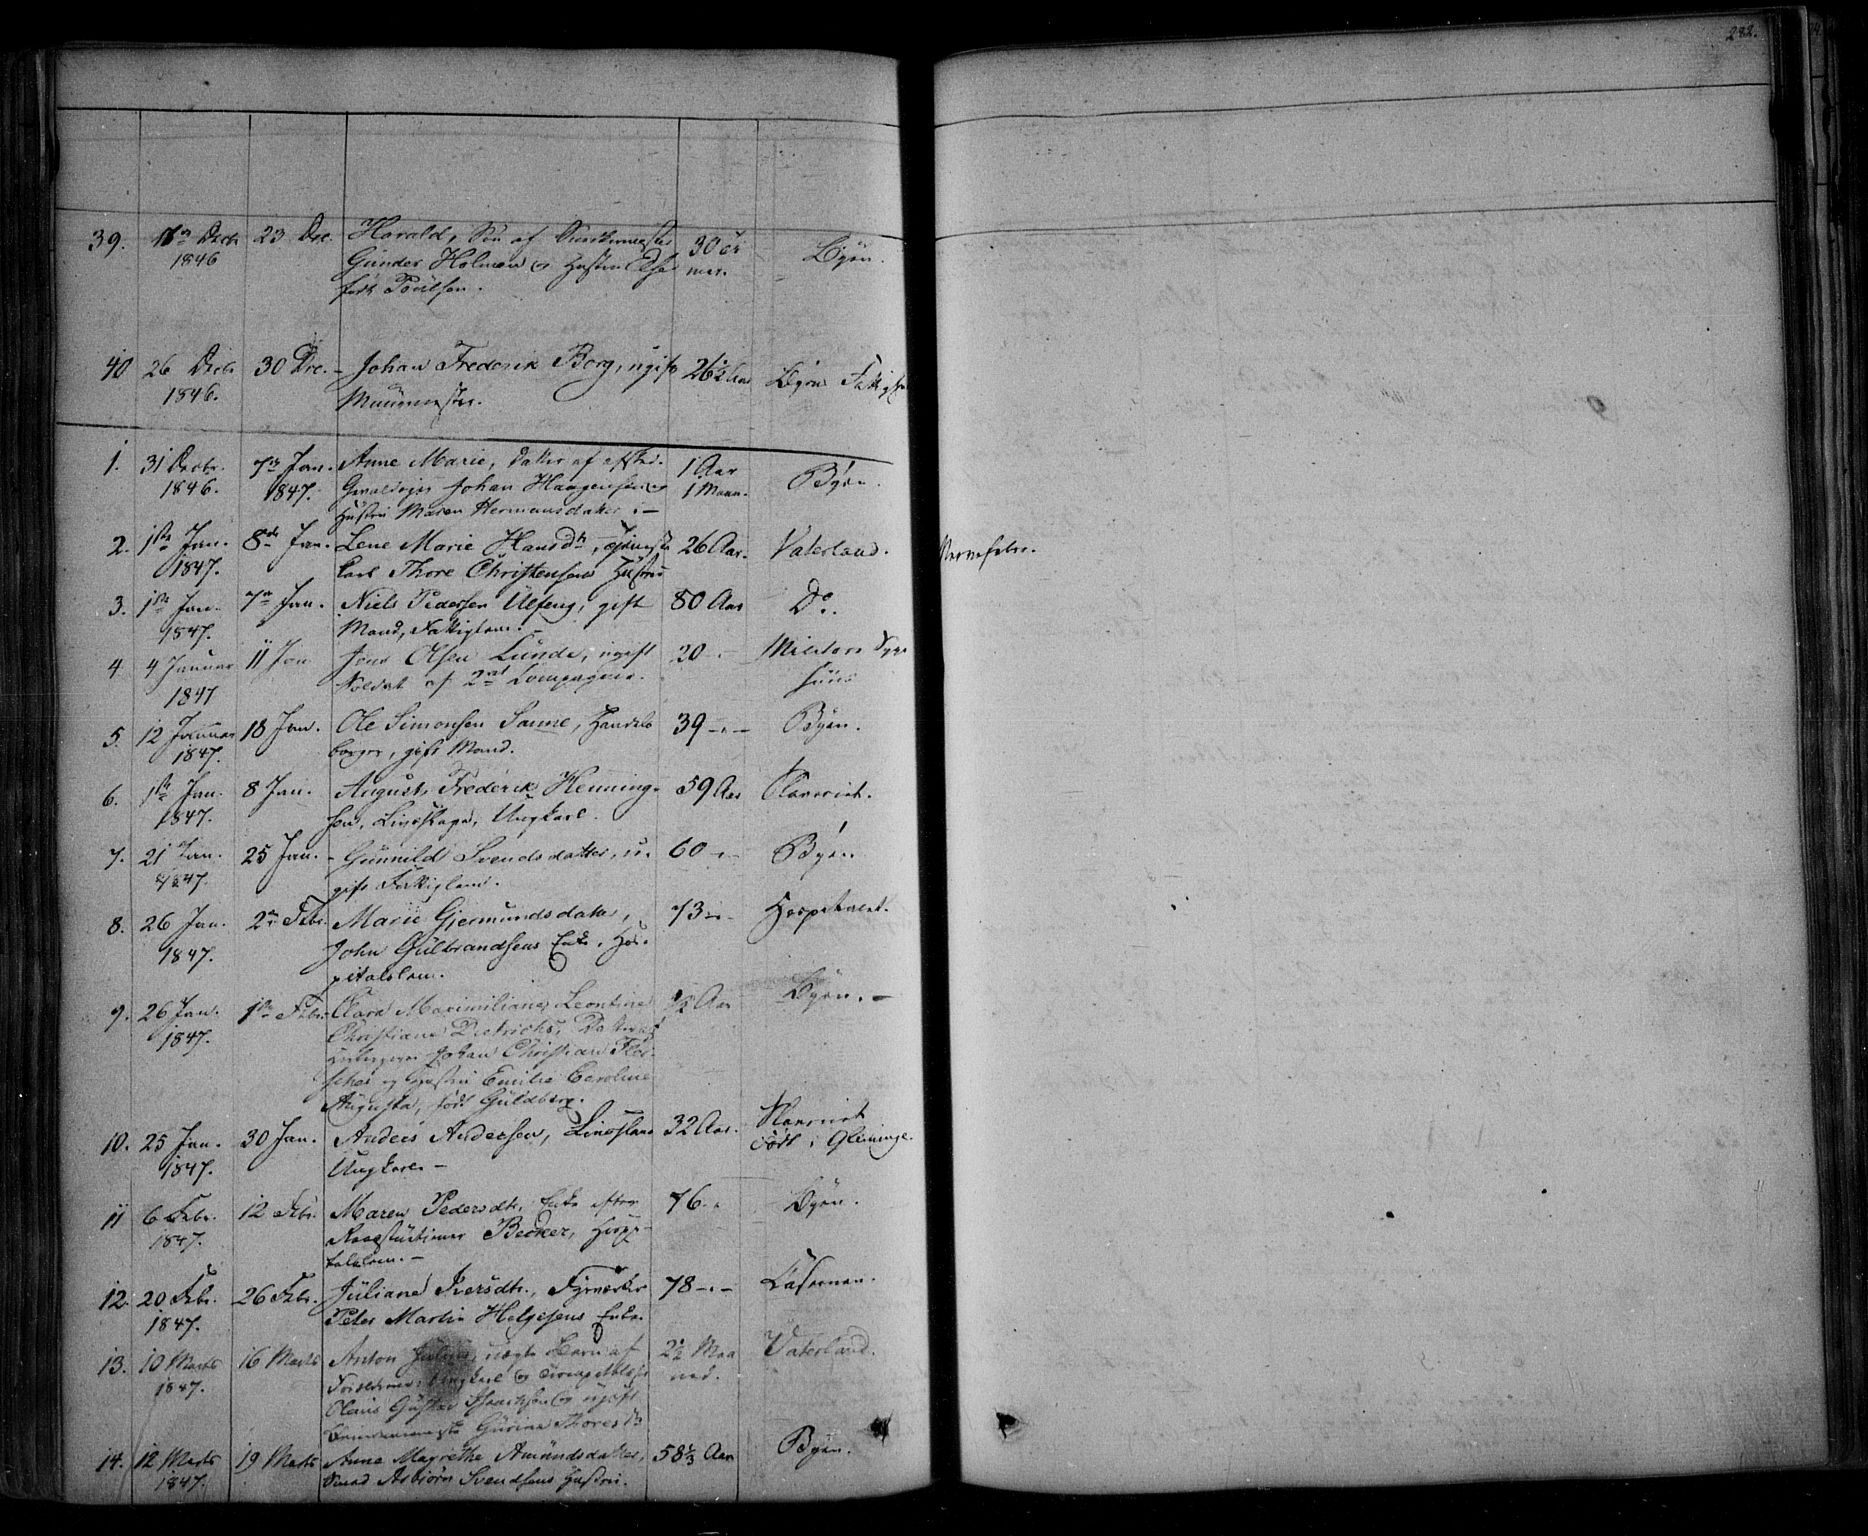 282.
39. Decbr 23 Dec. Harald, Søn af
1846 Gunder Holmen og Hustru Else 30
født Poulsen. Byen.
40 26 Decbr 30 Dec. Johan Frederik Borg, ugift 26½ Aar Byens
1846. Muurmester.
1. 31 Decbr. 7de Jan. Anne Marie, Datter af 1 Aar Byen.
1846. 1847. Johan Haagensen og 1 Maan.
Hustru Maren Hermansdatter. –
2. 1ste Jan. 8de Jan. Lene Marie Hansdtr, Tjeneste 26 Aar. Vaterland. Nervefeber.
1847. karl Thore Christensens Hustru
3. 1ste Jan. 7de Jan. Niels Pedersen Ulfeng, gift 80 Aar Do.
1847. Mand, Fattiglem. –
4 4 Januar 11 Jan Jens Olsen Lunde, ugift 20 – Militære Syge
1847 Soldat af 2det Compagnie. huus
5. 12 Januar 18 Jan. Ole Simonsen Sanne, Handels 39 – Byen.
1847. borger, gift Mand.
6. 1ste Jan. 8 Jan. August Frederik Henning- 59 Aar Slaveriet.
1847. sen, Livsslave, Ungkarl.
7. 21 Jan. 25 Jan. – Gunnild Svendsdatter, u- 60 – Byen.
1847. gift Fattiglem.
8. 26 Jan. 2den Febr. Marie Gjermundsdatter, 73 – Hospitalet.
1847. John Gulbrandsens Enke, Hos-
pitalslem.
9. 26 Jan. 1ste Febr. Clara Maximiliane Leontine ½ Aar Byen. –
1847. Christiane Dietrichs, Datter af
Johan Christian Flei-
scher og Hustru Emilie Caroline
Augusta, født Guldberg.
10. 25 Jan. 30 Jan. Anders Andersen, Livsslave 32 Aar. Slaveriet
1847. Ungkarl. – født i Glemminge.
11 6 Febr. 12 Febr. Maren Pedersdtr, Enke efter 76 – Byen.
1847. Becker, Hospi-
talslem. –
12. 20 Febr. 26 Febr. Juliane Iversdtr., Fyrværker 78 – Casernen.
1847. Peter Martin Helgesens Enke.
13. 10 Marts 16 Marts Anton Julius, uægte Barn af 2½ Maa Vaterland.
1847. Forældrene: Ungkarl og ned.
Olaus Gustav Isachsen og ugift
Gurine Thoresdtr
14. 12 Marts 19 Marts Anne Magrethe Amundsdatter, 58⅓ Aar Byen.
1847. Smed Asbjørn Svendsens Hustru.